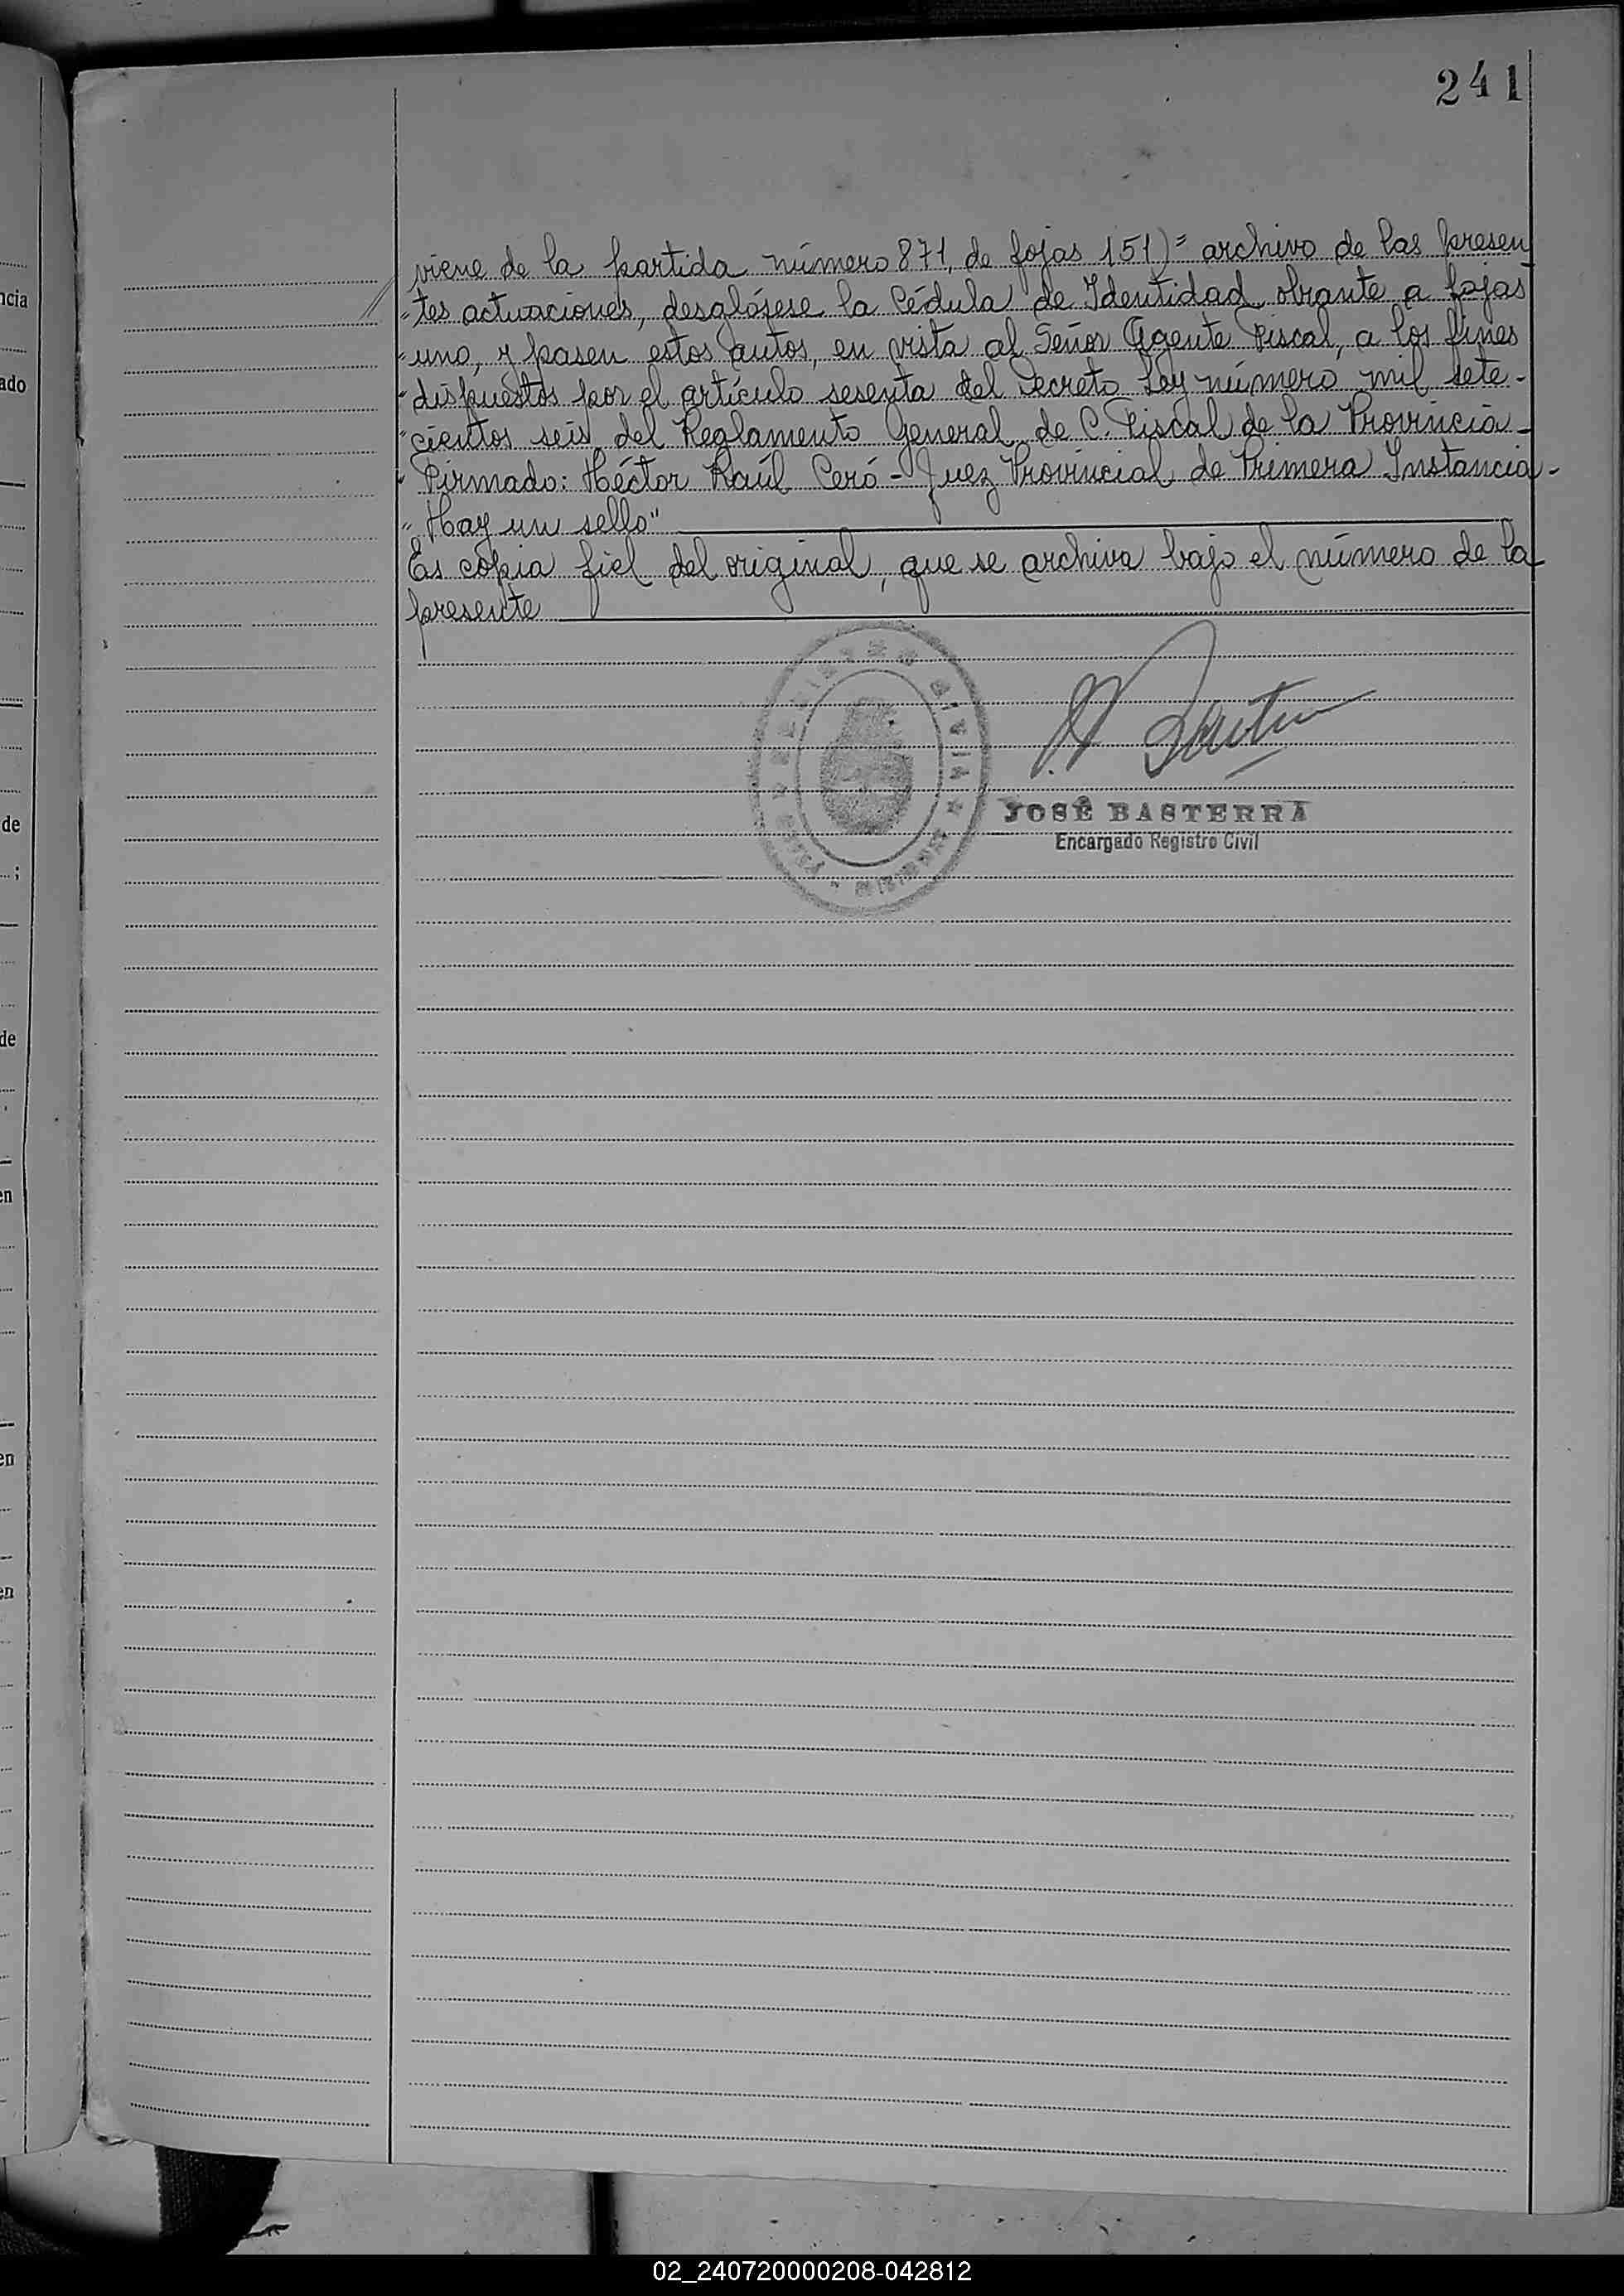 241
ncia
ado
de
;
de
en
en
en
viene de la partida número 871, de fojas 151)= archivo de las presen
"tes actuaciones, desglósese la Cédula de Identidad obrante a fojas
"uno, y pasen estos autos, en vista al Señor Agente Fiscal, a los fines
"dispuestos por el artículo sesenta del Decreto Ley número mil sete-
"cientos seis del Reglamento General de C. Fiscal de la Provincia-
" Firmado: Héctor Raúl Ceró - Juez Provincial de Primera Instancia-
"Hay un sello"
Es copia fiel del original, que se archiva bajo el número de la
presente
REGISTRO CIVIL
JOSÉ BASTERRA
Encargado Registro Civil
02_240720000208-042812